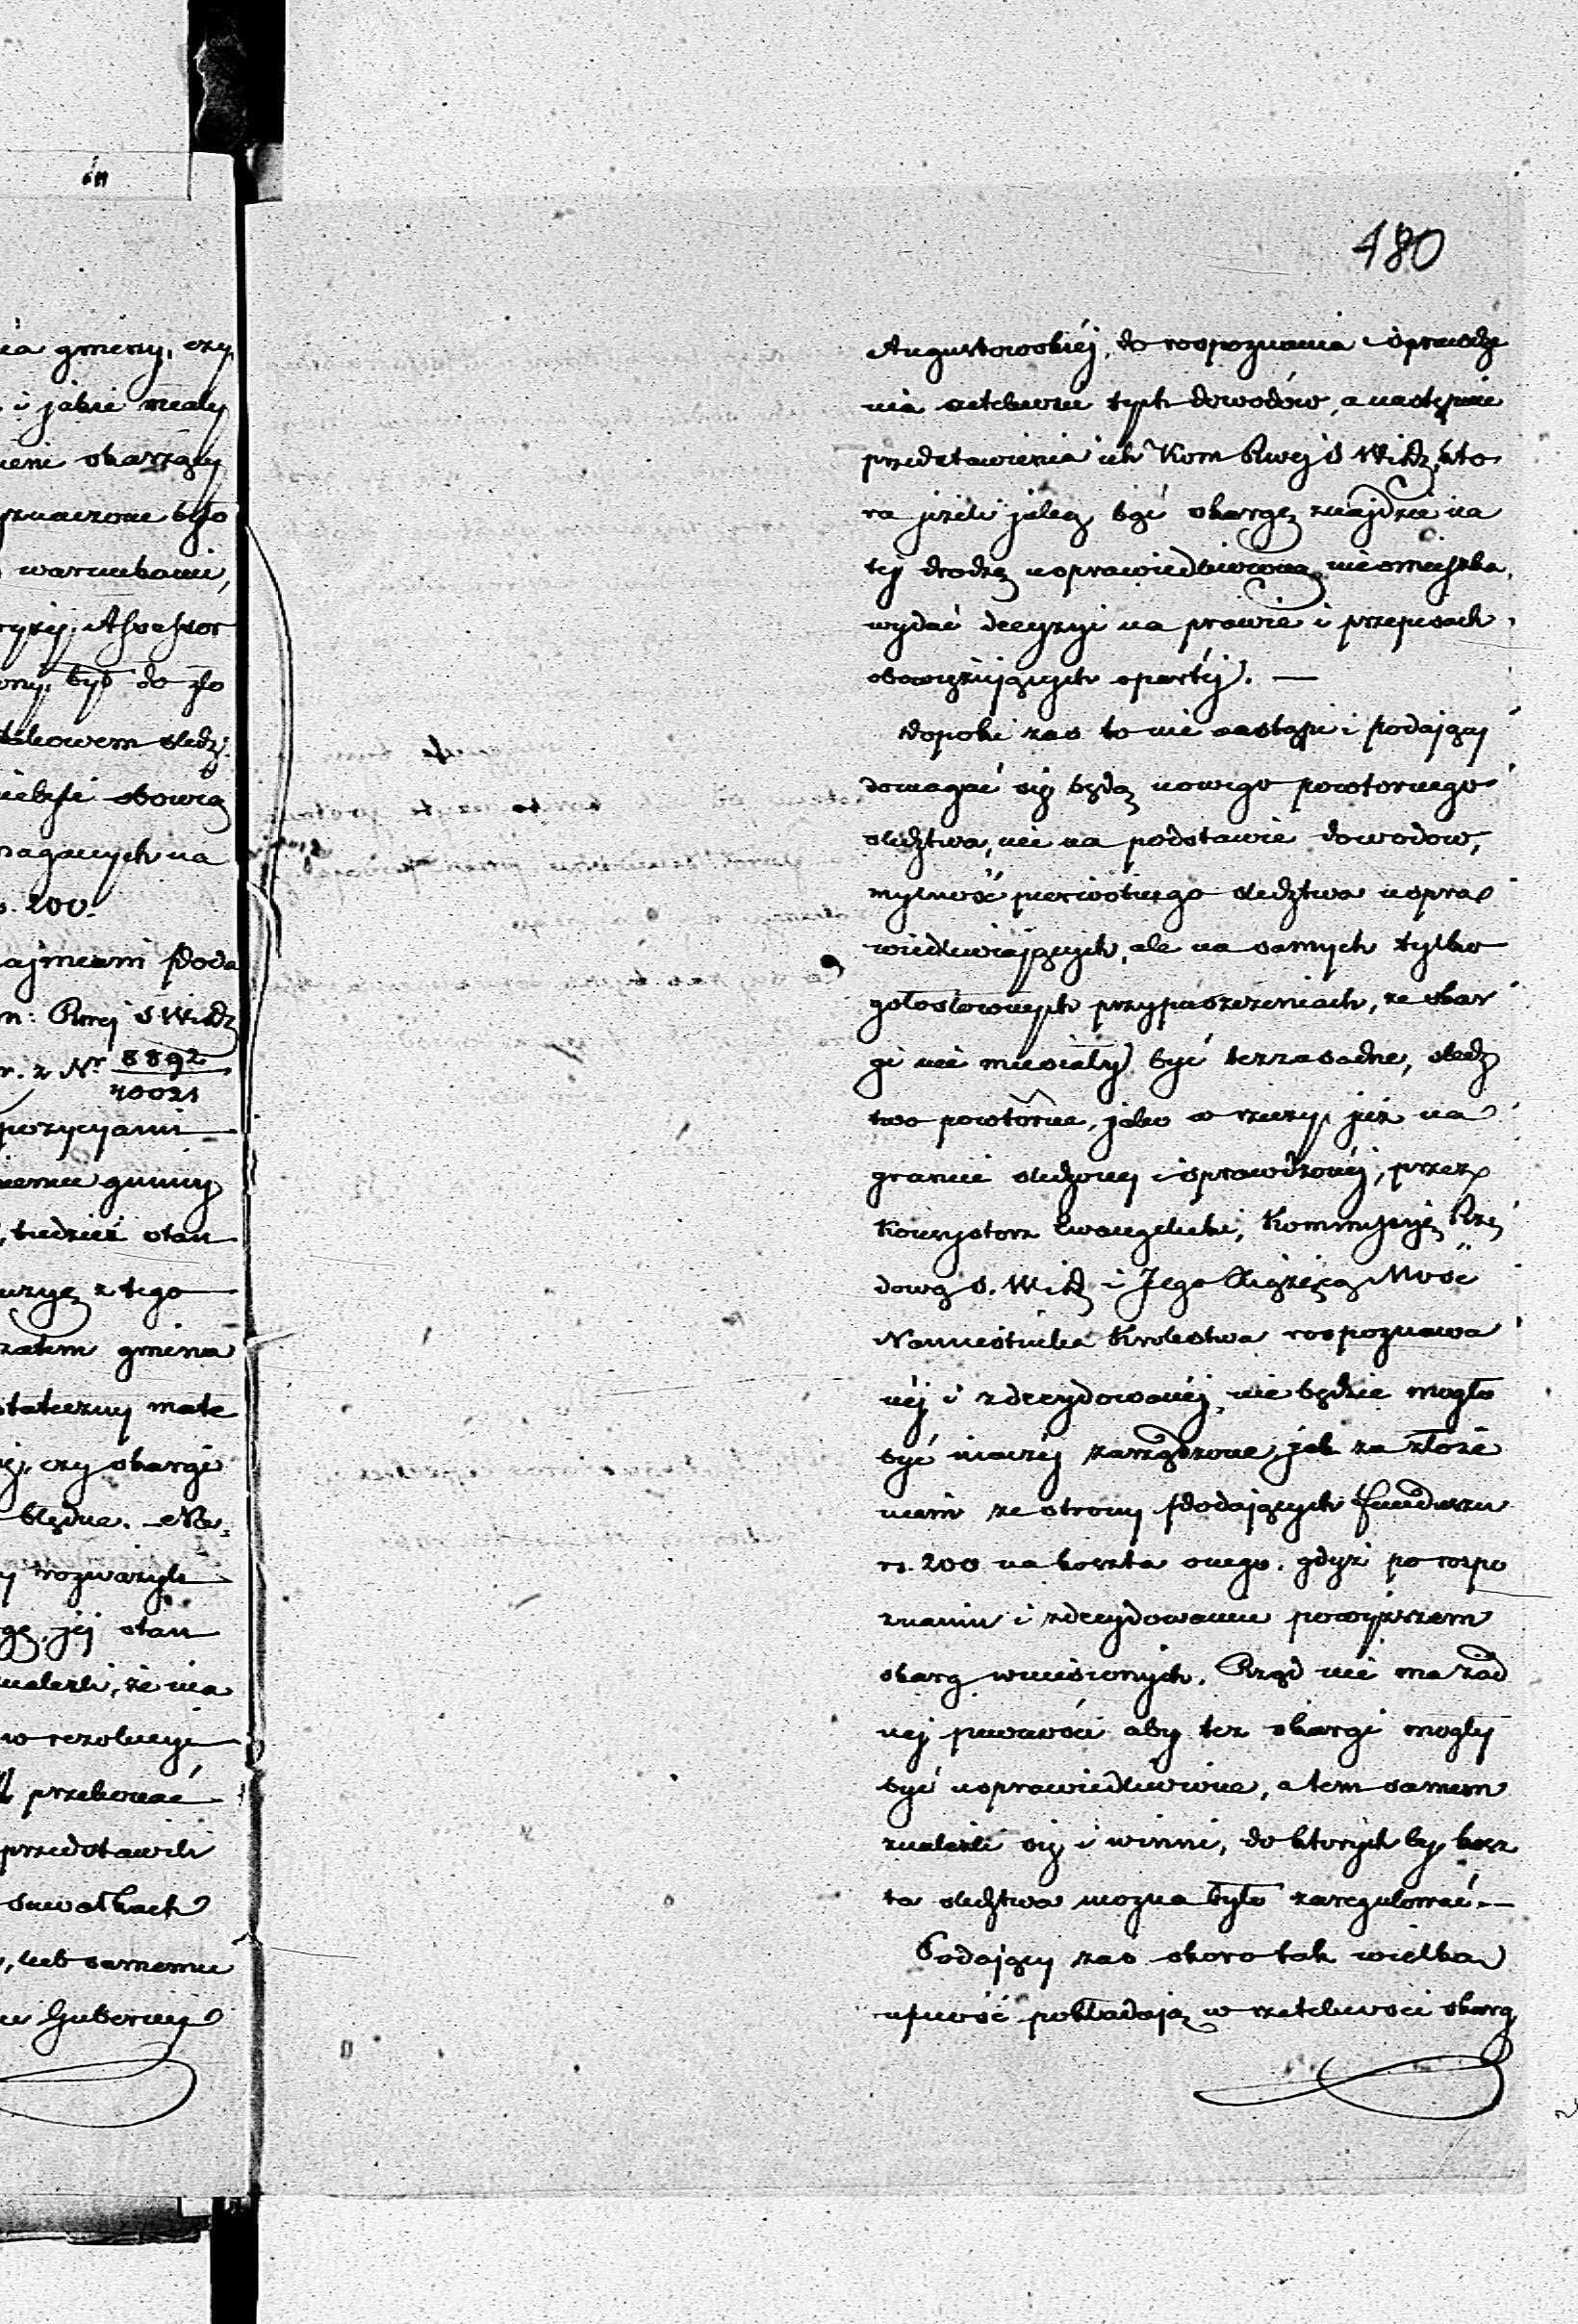 ia gminy, czy
i jakie miały
ieni skarżący
znaczone było
warunkami,
Assessor
ony, był do zło
obowią
magających na
s. 200.
ajmieni Poda
m: Rwej S Widz
r. z Nr 8892/10021
pozycyami
gminy
, kiedzież stan
z tego
zatem gmina
stateczny mate
ię, czy skargi
błędne. Na
y rozważyli
gę, jej stan
znaleźli, że nia
w rezolucyi
przekonać
przedstawili
Suwałkach
, lub samemu
Gubernij
180
Augustowskiéj, do rospoznania i sprawdze
nia rzetelności tych dowodów, a następnie
przedstawienia ich Kom Rwej S Widz, któ
ra jeżeli jaką bądź skargę znajdzie na
téj drodze usprawiedliwioną, nieomieszka
wydać decyzyi na prawie i przepisach
obowiązujących opartéj. —
Dopoki zas to nie nastąpi i podający
domagać się będą nowego powtornego
sledztwa, nie na podstawie dowodow,
mylność pierwotnego sledztwa uspra
wiedliwiających, ale na samych tylko
gołosłownych przypuszczeniach, ze skar
gi nie musiały być bezzasadne, sledz
two powtórne, jako w rzeczy już na
gruncie sledzonej i sprawdzonéj, przez
Konsystorz Ewangelicki, Kommissyę Rzą
dową S. Widz i Jego Xiążęcą Mość
Namiestnika Krolestwa rospoznawa
néj i zdecydowanéj, nie będzie mogło
być inaczéj zarządzone, jak za złoże
niem ze strony Podających funduszu
rs. 200 na koszta onego, gdyż po rospo
znaniu i zdecydowaniu powyższem
skarg wniesionych, Rząd nie ma żad
nej pewności aby tez skargi mogły
być usprawiedliwione, a tem samem
znaleźli się i winni, do ktorych by kosz
ta sledztwa mozna było zaregulować. —
Podający zas skoro tak wielką
ufność pokładają w rzetelności skarg